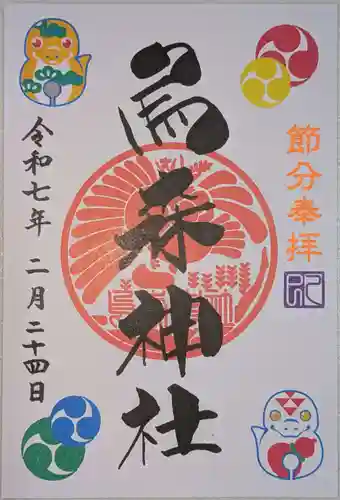 節分奉拝
巳
烏森神社
令和七年 二月二十四日